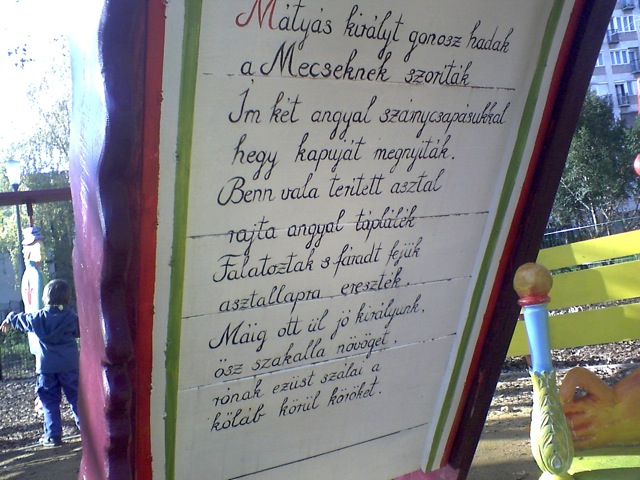 Mátyás királyt gonosz hadak
a Mecseknek szoríták
Ím két angyal szárnycsapásukkal
hegy kapuját megnyiták.
Benn vala terített asztal
rajta angyal táplálék
Falatoztak s fáradt fejük
asztallapra ereszték.
Máig ott ül jó királyunk,
ősz szakálla növöget.
rónak ezüst szálai a
kőláb körül köröket.